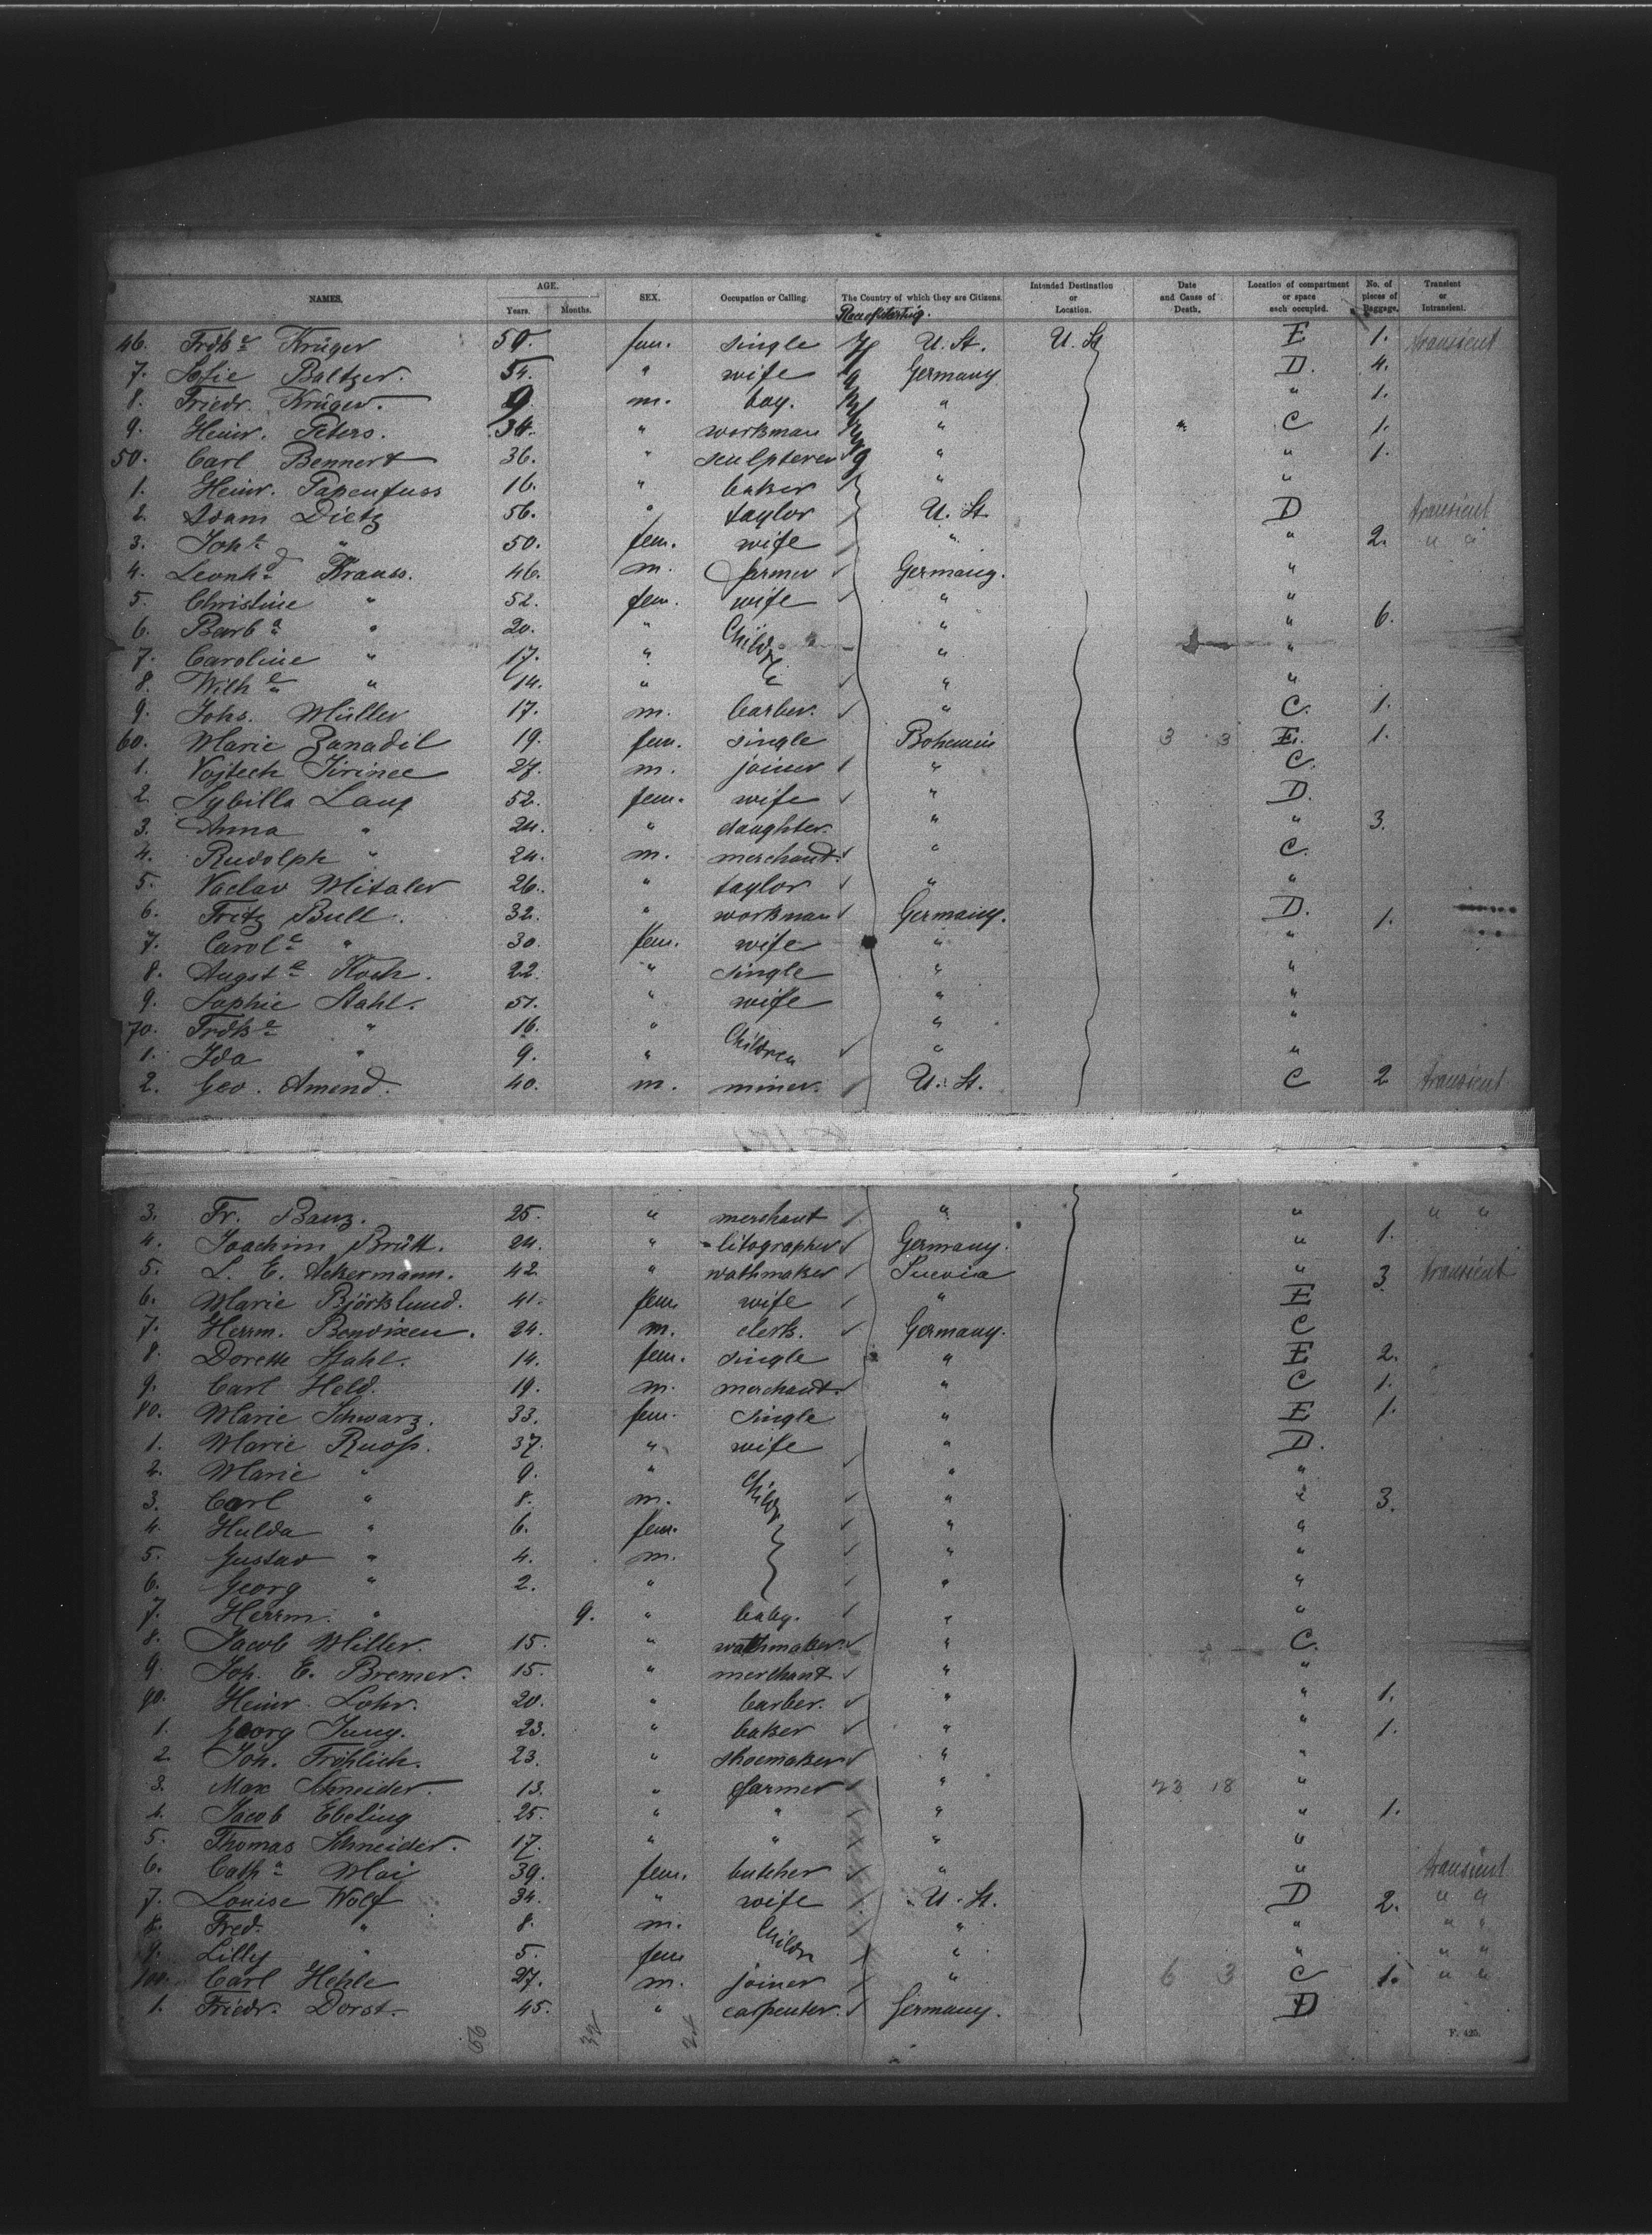 NAMES. AGE. Years. Months. SEX. Occupation or Calling. The Country of which they are Citizens. Intended Destination or Location. Date and Cause of Death. Location of compartment or space each occupied. No. of pieces of Baggage. Transient or Intransient.
46. Frdke Krüger 50. fem. single U. St. U. St E 1. transient
7. Sofie Baltzer. 54. " wife Germany D. 4.
8. Friedr. Krüger. 9 m. boy. " " 1.
9. Heinr. Peters. 34. " workman " C 1.
50. Carl Bennert 36. " sculpterer " " 1.
1. Heinr. Papenfuss 16. " baker " "
2. Adam Dietz 56. " taylor U. St. D transient
3. Joha " 50. fem. wife " " 2. " "
4. Leonhd Krauss. 46. m. farmer Germany. "
5. Christine " 52. fem. wife " "
6. Barba " 20. " Childr. " " 6.
7. Caroline " 17. " " "
8. Wilhe " 14. " " " "
9. Johs. Müller 17. m. barber. " C. 1.
60. Marie Zanadil 19. fem. single Bohemia 3 3 E. 1.
1. Vojtech Jirinec 27. m. joiner " C.
2. Sybilla Lang 52. fem. wife " D.
3. Anna " 24. " daughter. " " 3.
4. Rudolph " 24. m. merchant. " C.
5. Vaclav Mitaler 26. " taylor " "
6. Fritz Bull. 32. " workman Germany. D. 1.
7. Carole " 30. fem. wife " "
8. Augste Koch. 22. " single " "
9. Sophie Stahl. 51. " wife " "
70. Frdke " 16. " Children " "
1. Ida " 9. " " "
2. Geo. Amend. 40. m. miner. U. St. C 2 transient
3. Fr. Banz. 25. " merchant " " " "
4. Joachim Brütt. 24. " litographer Germany. " 1.
5. L. E. Ackermann. 42 " wathmaker Suevia " 3. transient
6. Marie Björklund. 41. fem. wife " E
7. Herrm. Bendixen. 24. m. clerk. Germany. C
8. Dorette Stahl. 14. fem. single " E 2.
9. Carl Held. 19. m. merchant. " C 1.
80. Marie Schwarz. 33. fem. single " E 1.
1. Marie Ruoss. 37. " wife " D.
2. Marie " 9. " Childr " "
3. Carl " 8. m. " " 3.
4. Hulda " 6. fem. " "
5. Gustav " 4. m. " "
6. Georg " 2. " " "
7. Herrm. " 9. " baby. " "
8. Jacob Miller. 15. " wathmaker. " C.
9. Joh. E. Bremer. 15. " merchant " "
90. Heinr. Lohr. 20. " barber. " " 1.
1. Georg Jung. 23. " baker " " 1.
2 Joh. Fröhlich. 23. " shoemaker " "
3. Max Schneider. 13. " farmer " 23 18 "
4. Jacob Ebeling 25. " " " " 1.
5. Thomas Schneider. 17. " " " "
6. Catha Mai 39. fem. butcher " " transient
7. Louise Wolf 34. " wife U. St. D 2. " "
8. Fred. " 8. m. Childr " " " "
9. Lilly " 5. fem " " " "
100. Carl Hehle 27. m. joiner " 6 3 C 1. " "
1. Friedr. Dorst. 45. " carpenter. Germany. D
F. 420.